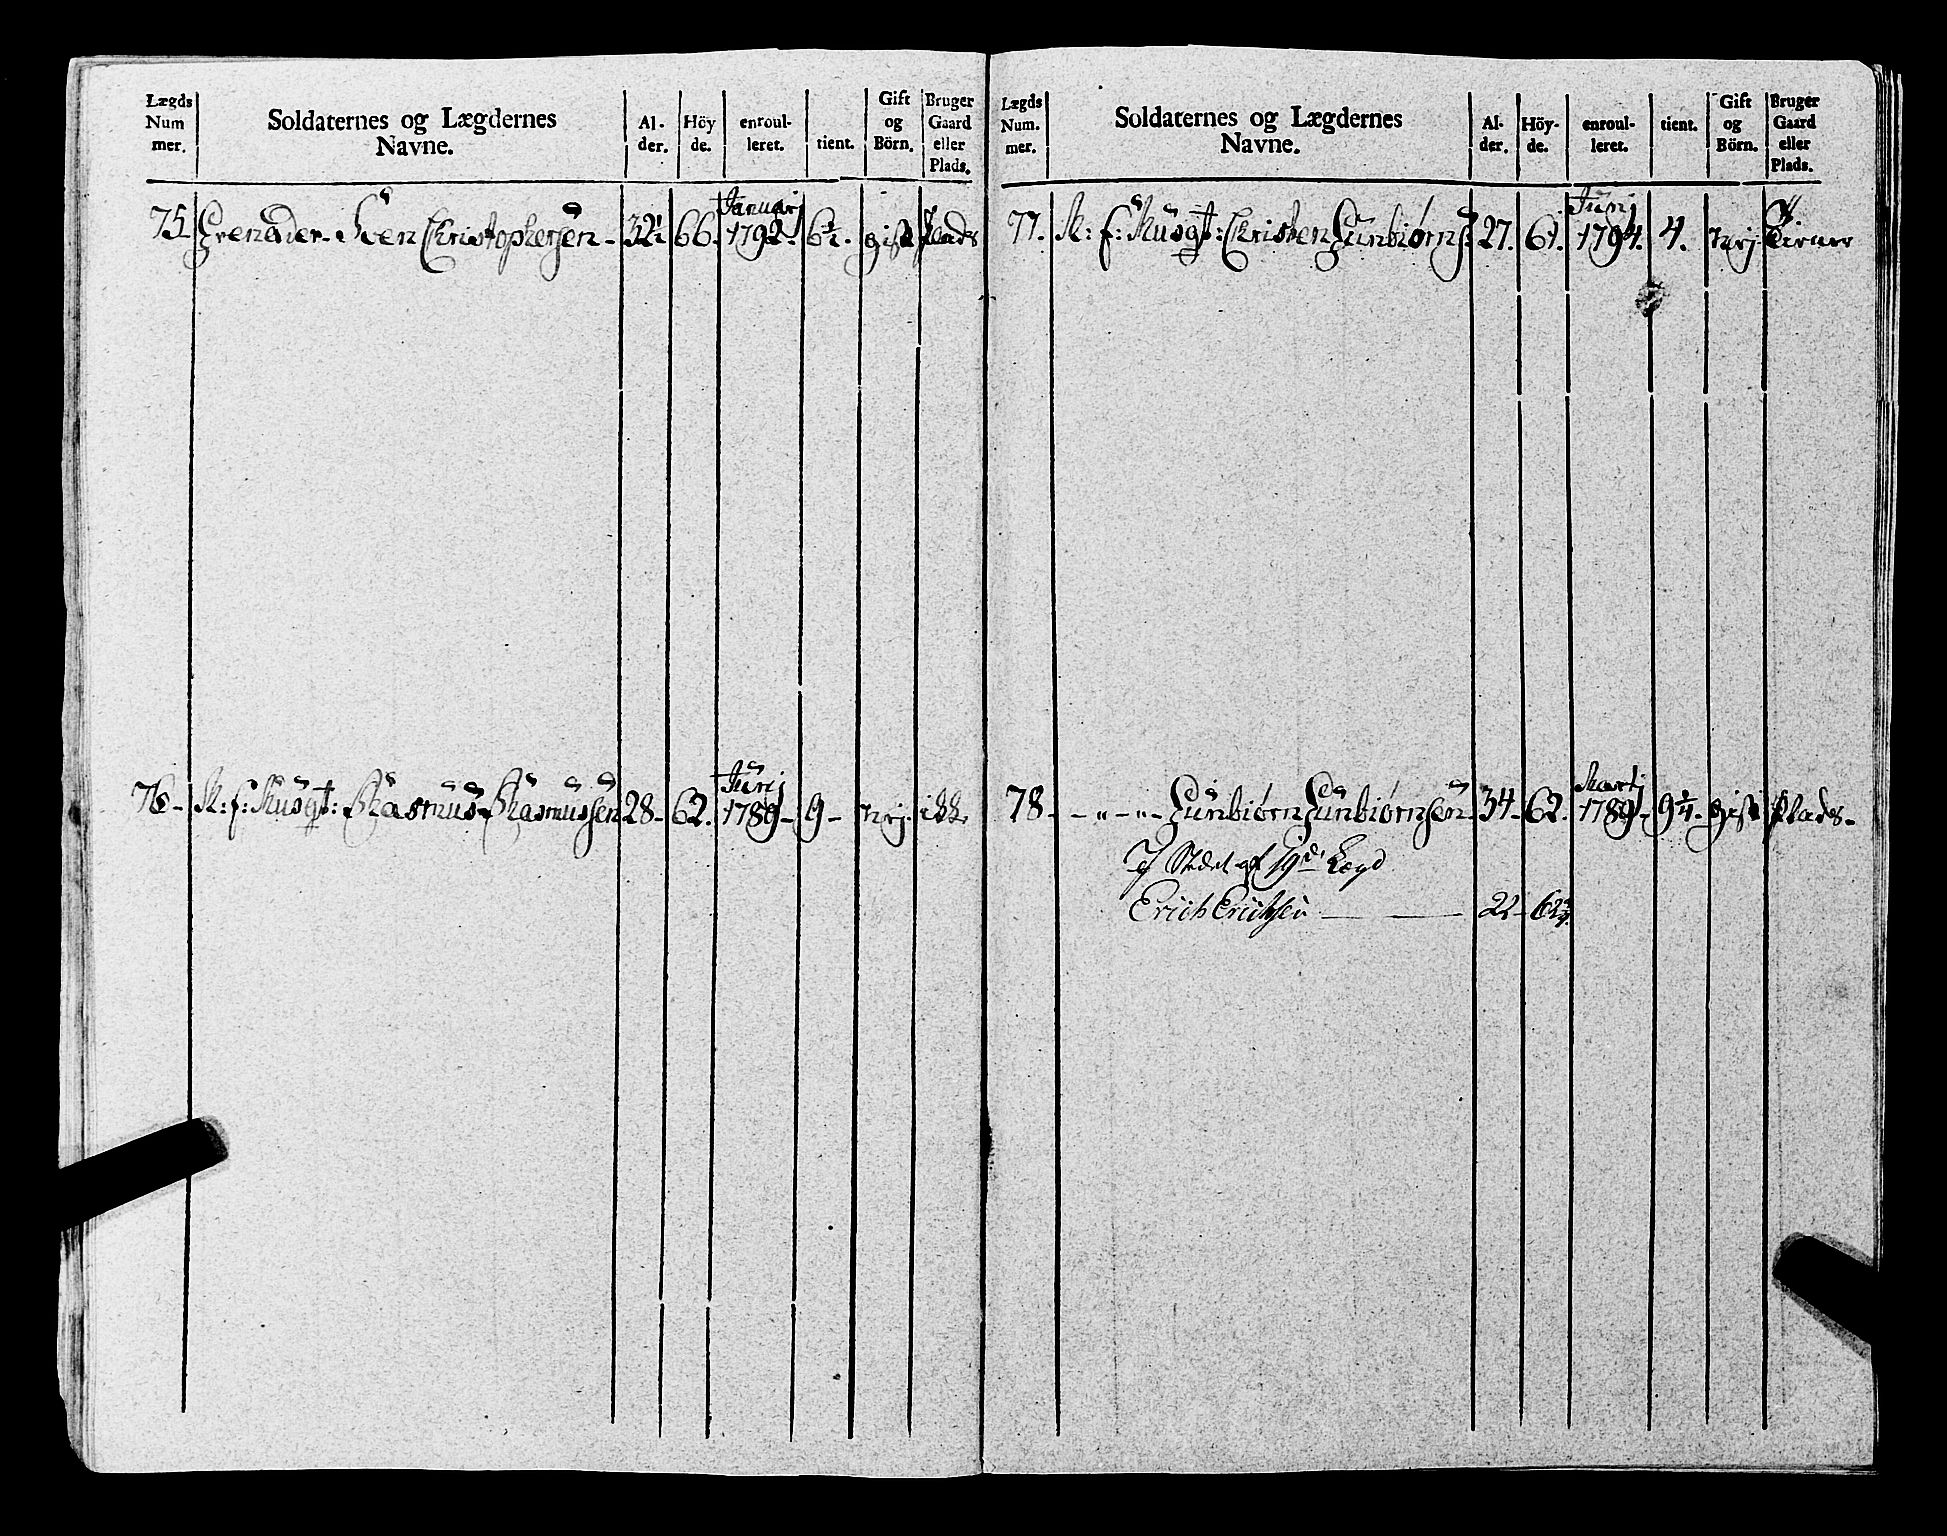 Lægds Num mer. Soldaternes og Lægdernes Navne. Al- der. Höy de. enroul- leret. tient. Gift og Börn. Bruger Gaard eller Plads.
Januarj
75 Grenader - Sven Christophersen - 32½ 66. 1792. 6½. gift plads
Junj
76 - N: f: Musqt: Rasmus Rasmussen 28 - 62. 1789 - 9 - nej. ikke
Lægds Num. mer. Soldaternes og Lægdernes Navne. Al- der. Höy- de. enroul- leret. tient. Gift og Börn. Bruger Gaard eller Plads.
Junj
77. N: f: Musqt: Christen Gunbiørns: 27. 61. 1794. 4. nej tiener
Martj
78 - - " - " - Gunbiørn Gunbiørnsen - 34 - 62. 1789 - 9¼ - gift plads -
I Stedet af 19de Lægd
Erich Erichsen 22 - 62¾.